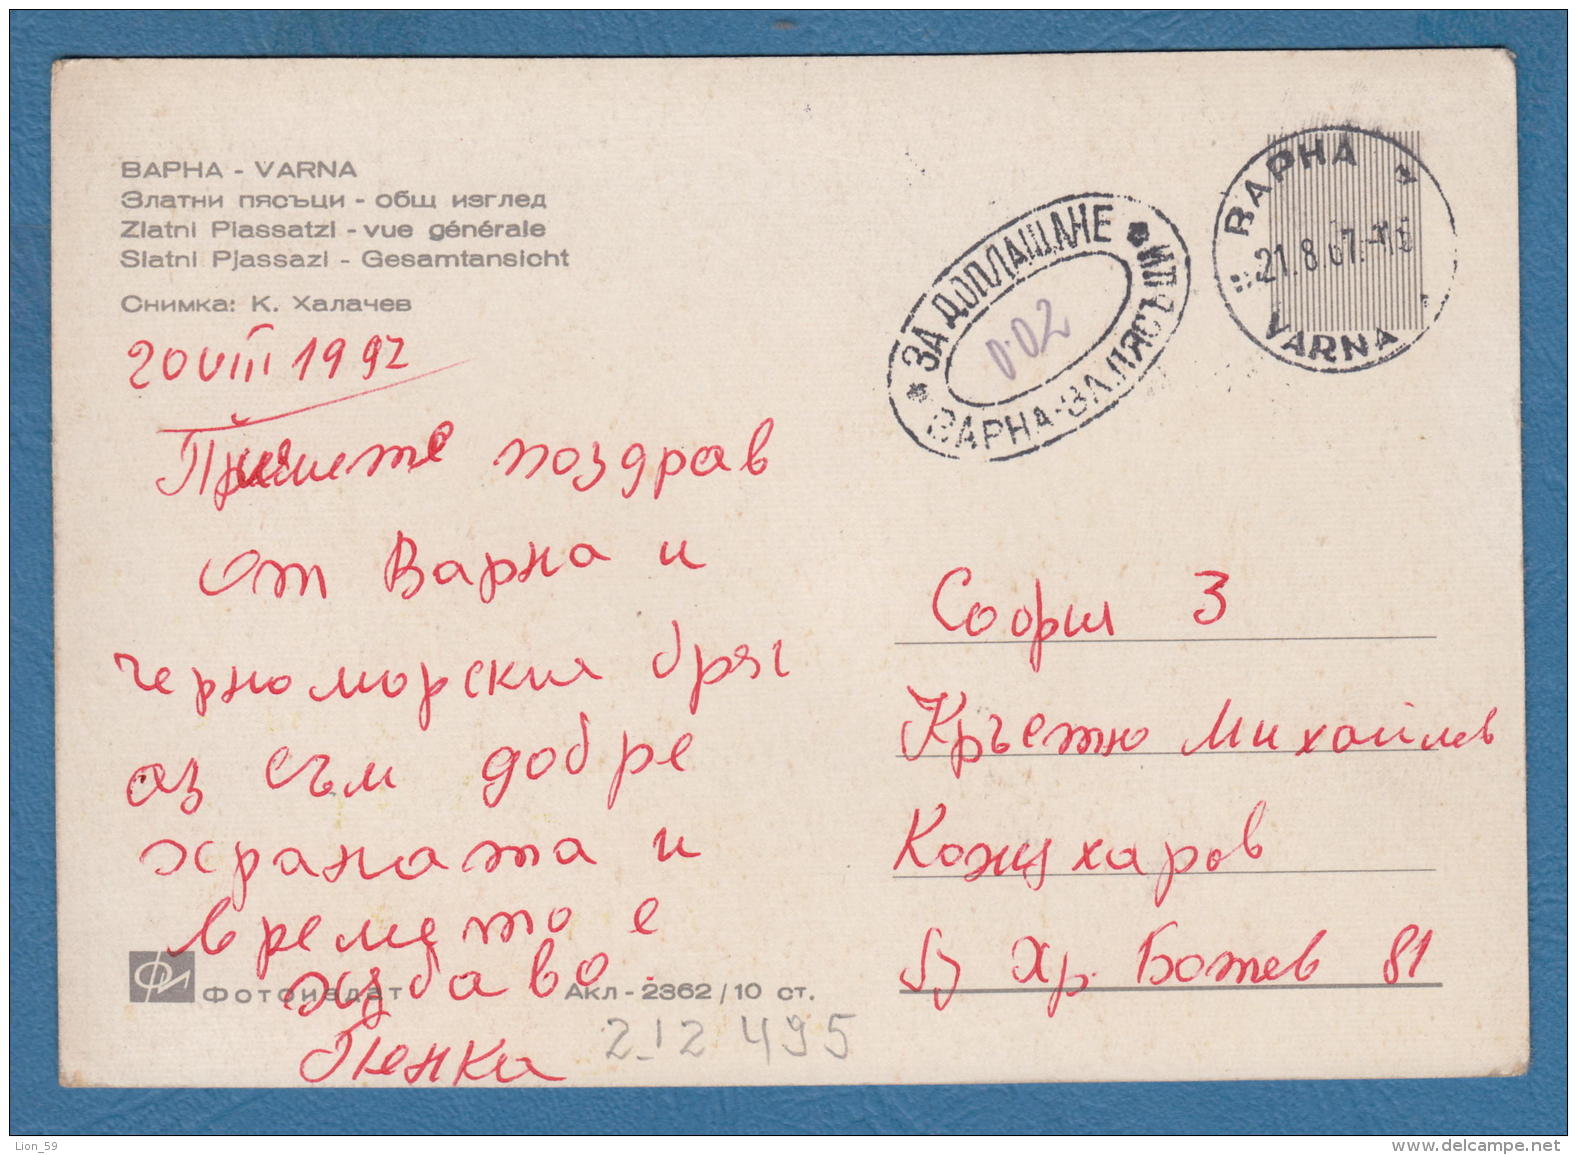 ВАРНА - VARNA
Златни пясъци - общ изглед
Zlatni Piassatzi - vue générale
Slatni Pjassazi - Gesamtansicht
Снимка: К. Халачев
20 VIII 1992
Приеште поздрав
от Варна и
черноморския бряг
аз съм добре
храната и
времето е
хубаво.
Пенка
Фотоиздат
Акл - 2362 / 10 ст.
212 495
ЗА ДОПЛАЩАНЕ
ВАРНА - ЗЛ. ПЯСЪЦИ
0.02
ВАРНА
21.8.67
VARNA
София 3
Кръстю Михайлов
Кожухаров
Хр. Ботев 81
Lion_59
www.delcampe.net